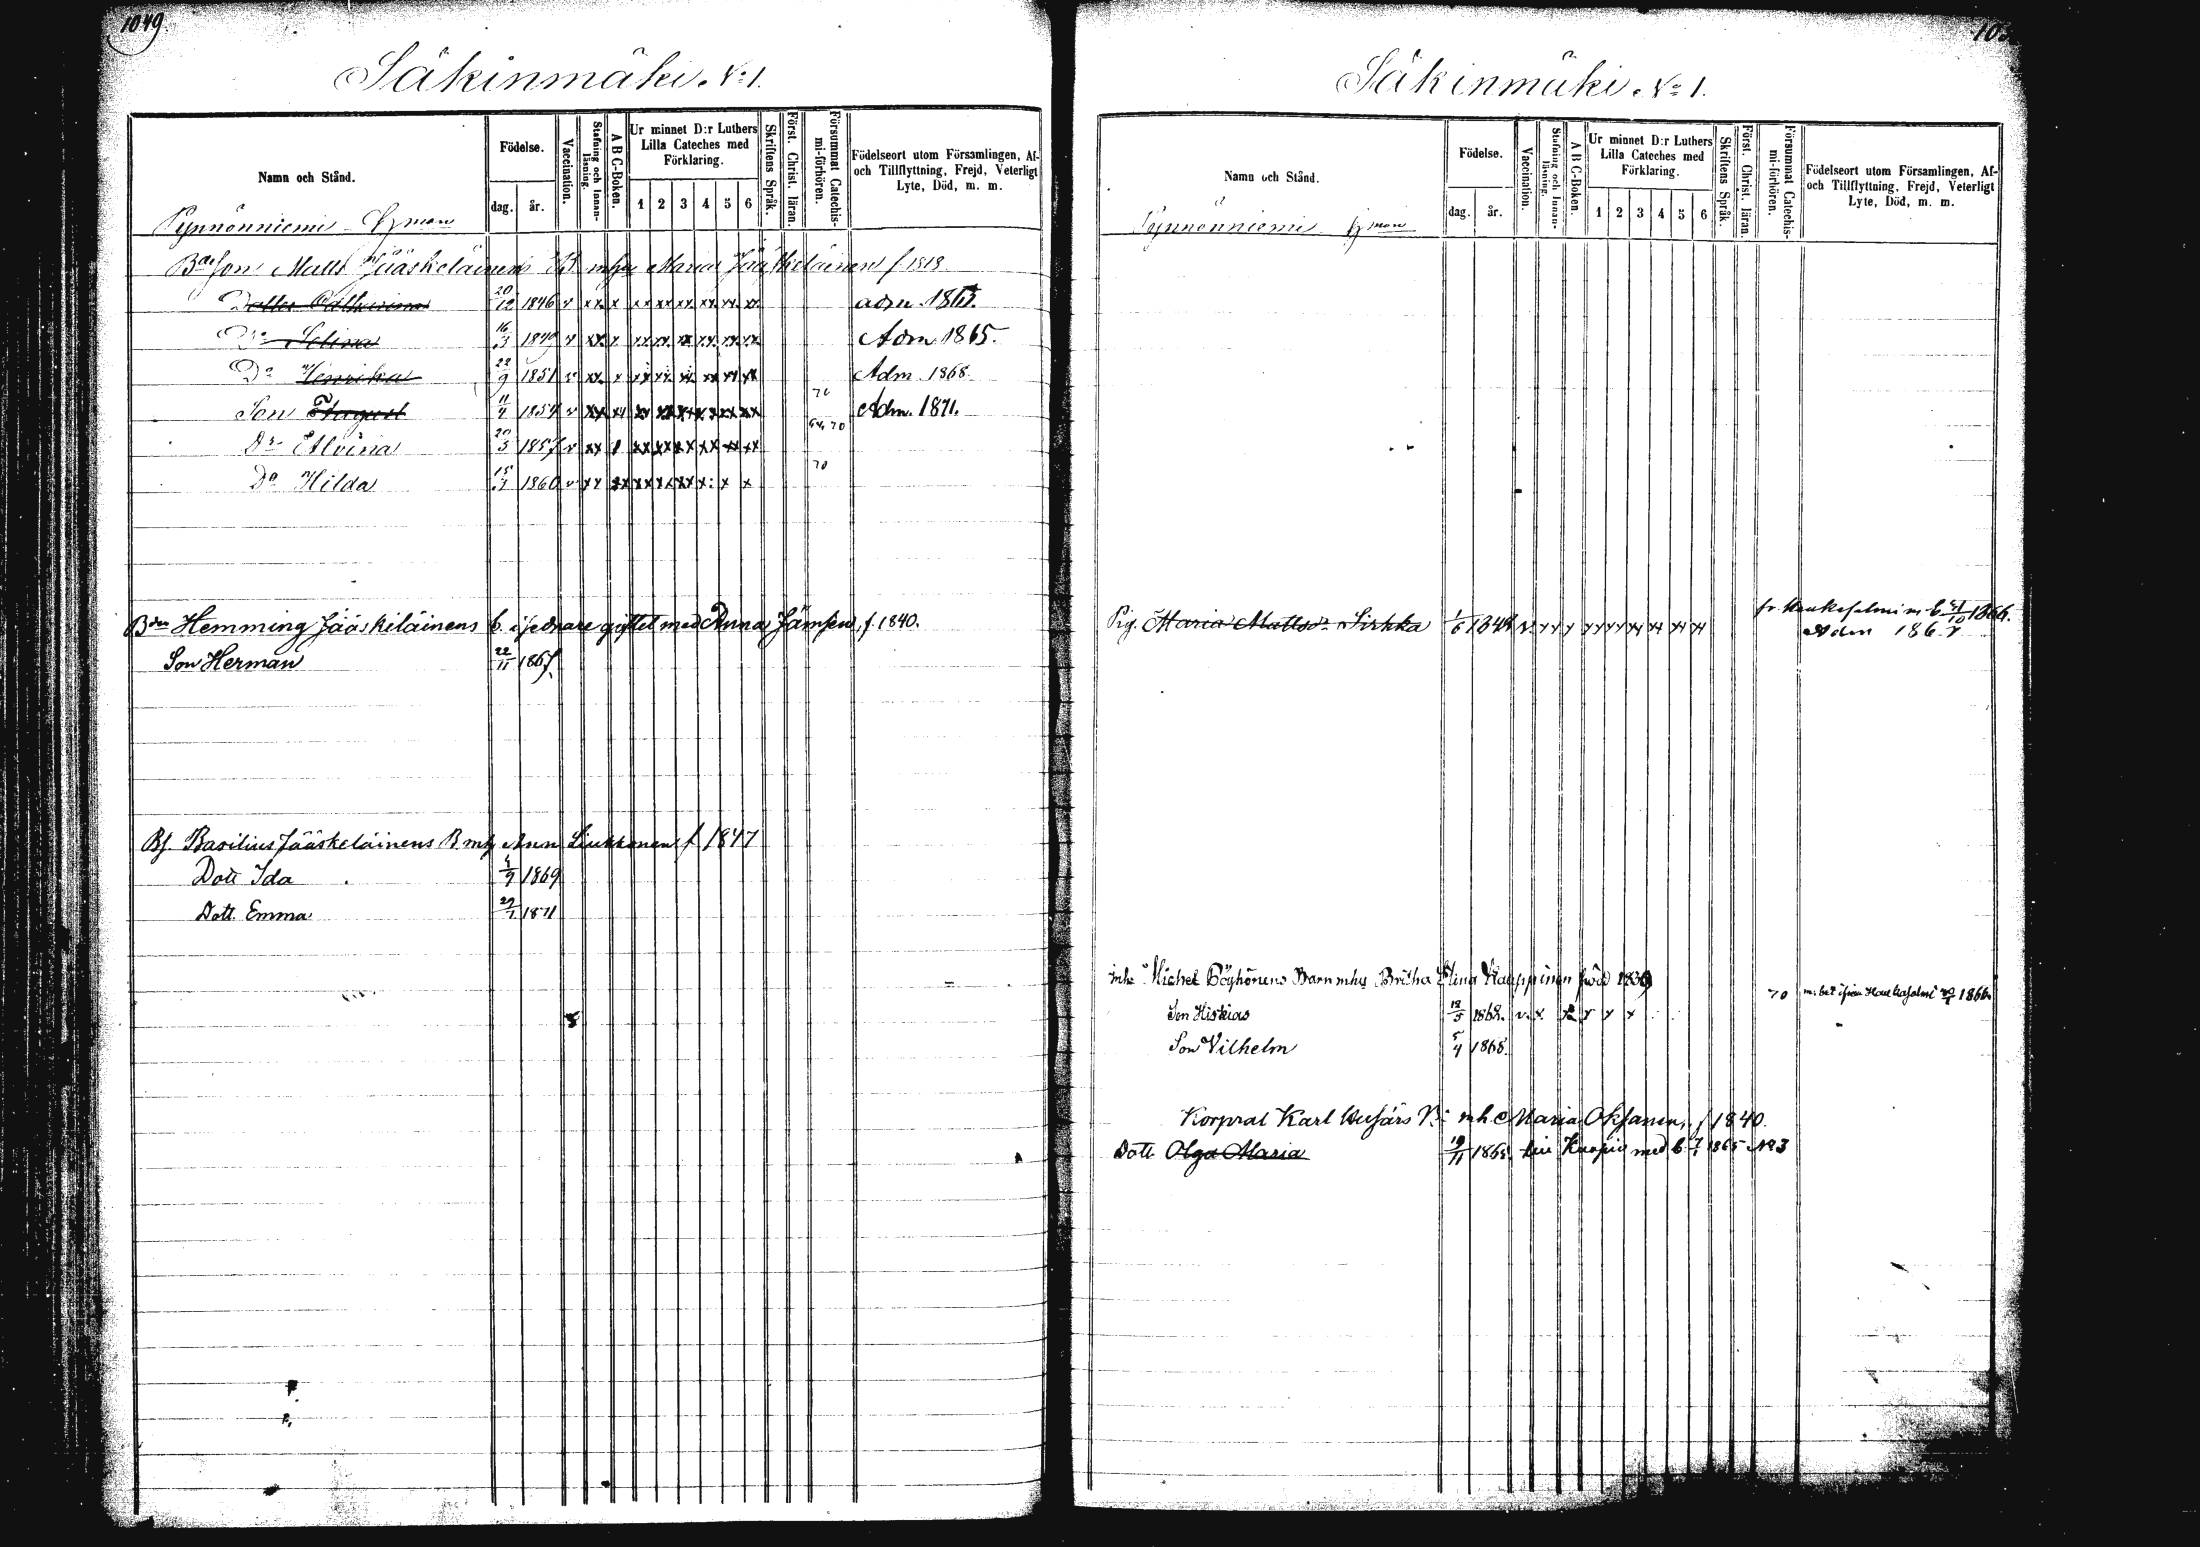 1049.
Säkinmäki. No 1.
Namn och Stånd.
Födelse.
dag. år.
Vaccination.
Stafning och Innan-läsning.
A B C-Boken.
Ur minnet D:r Luthers Lilla Cateches med Förklaring.
1 2 3 4 5 6
Skriftens Språk.
Först. Christ. läran.
Försummat Catechismi-förhören.
Födelseort utom Församlingen, Af- och Tillflyttning, Frejd, Veterligt Lyte, Död, m. m.
Pynnönniemi
Son Matts Jääskeläinens mhu Maria Jääskeläinen f 1818
Dotter Catharina 20/12 1846 v xx x xx xx xx xx xx xx adm.
Do Selina 16/3 1849 v xx x xx xx xx xx xx xx Adm 1865.
Do Henrika 22/9 1851 v xx x xx xx xx xx xx xx Adm. 1868.
Son August 11/4 1854 v xx xx xx xx xx xx xx xx 70 Adm. 1871.
Do Alvina 20/3 1857 v xx xx xx xx xx xx xx 70
Do Hilda 15/3 1860 v xx xx xx xx xx x x x 70
Bdn Hemming Jääskeläinens b. i sednare giftet med Anna Jämsen, f. 1840.
Son Herman 22/11 1867.
Bf. Basilius Jääskeläinens B mhu Anna Liukkonen f 1847
Dott Ida 4/9 1869
Dott. Emma 29/1 1871
Säkinmäki. No 1.
Namn och Stånd.
Födelse.
dag. år.
Vaccination.
Stafning och Innan-läsning.
A B C-Boken.
Ur minnet D:r Luthers Lilla Cateches med Förklaring.
1 2 3 4 5 6
Skriftens Språk.
Först. Christ. läran.
Försummat Catechismi-förhören.
Födelseort utom Församlingen, Af- och Tillflyttning, Frejd, Veterligt Lyte, Död, m. m.
Pynnönniemi
Pig. Maria Mattsdr Sirkka 1/6 1848 fr. Haukasalmi m. b. 1866.
Adm
inh. Michel Pöyhönens Barn mhu Britha Elina Kauppinen född 1839
70 m. bet ifrån Haukasalmi 1866.
Son Hiskias 18/5 186 v. x x x x x
Son Vilhelm 5/4 1868.
Korpral Karl B: mh Maria Oksanen, f 1840.
Dott Olga Maria 19/11 186 till Kuopio med b. 7/1 1865 No 3